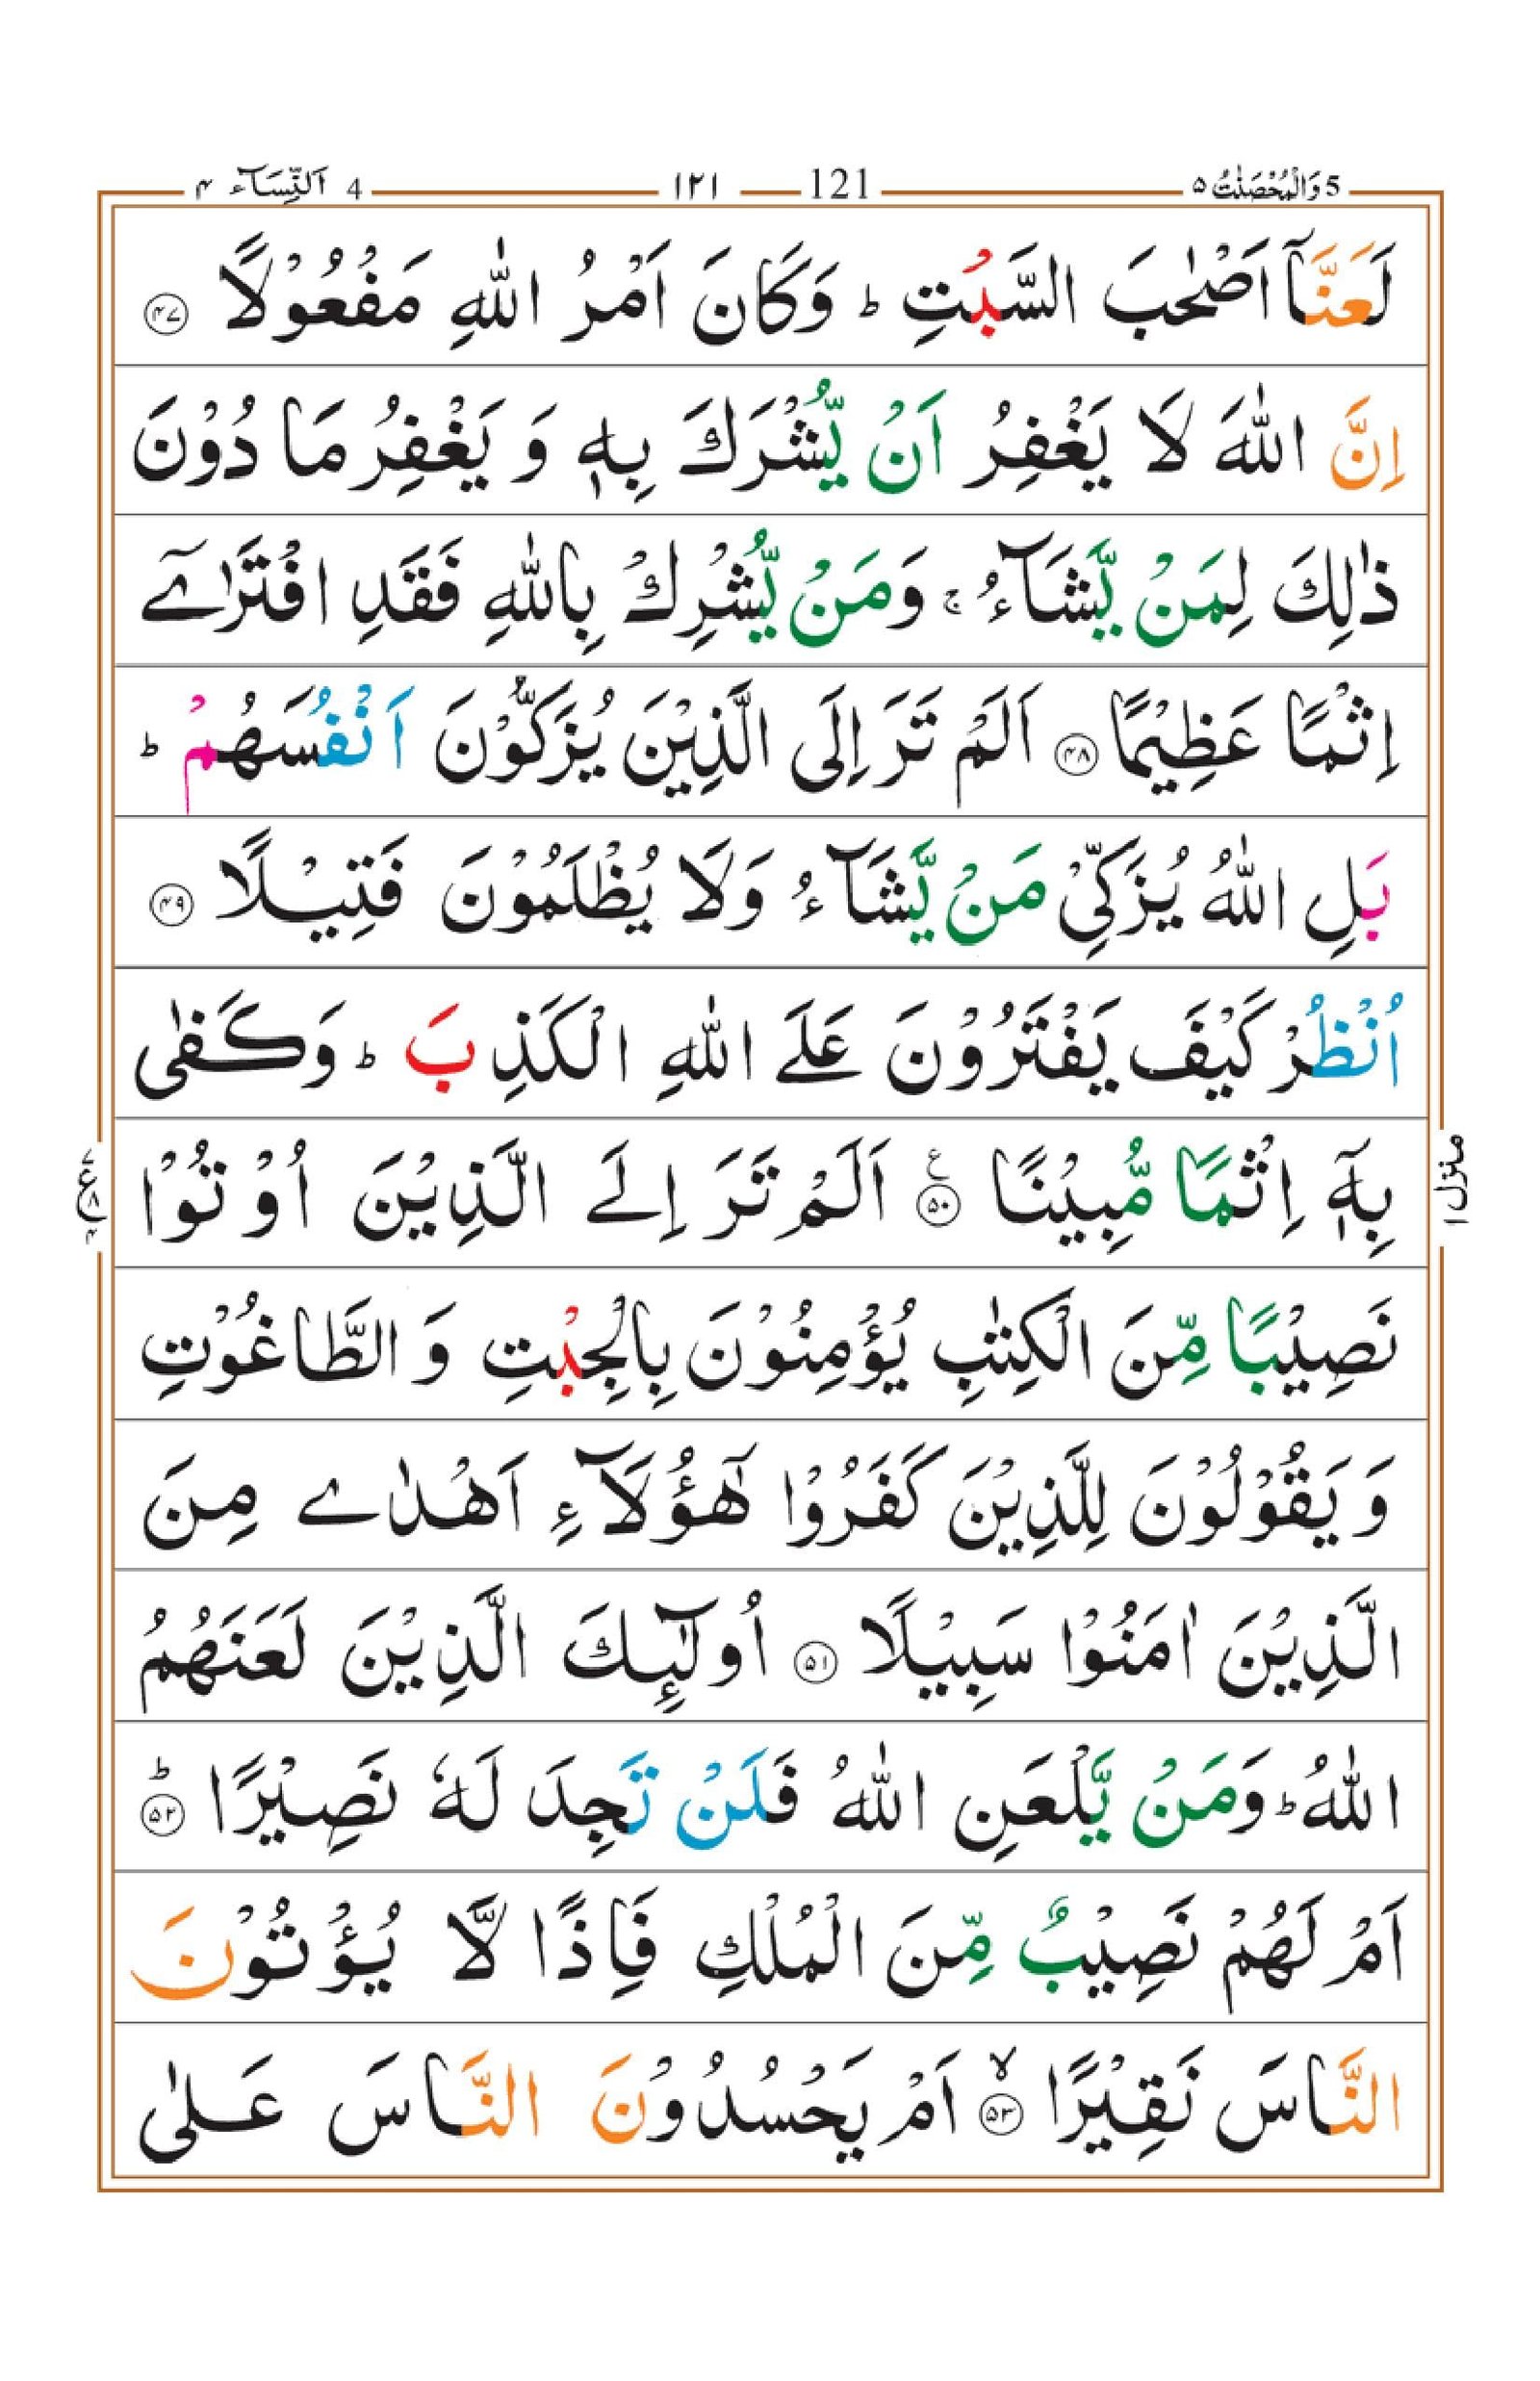 5 وَالْمُحْصَنٰتُ ۵ 121 ۱۲۱ 4 اَلنِّسَآء ۴
لَعَنَّاۤ اَصْحٰبَ السَّبْتِ ؕ وَكَانَ اَمْرُ اللّٰهِ مَفْعُوْلًا ﴿۴۷﴾
اِنَّ اللّٰهَ لَا يَغْفِرُ اَنْ يُّشْرَكَ بِهٖ وَ يَغْفِرُ مَا دُوْنَ
ذٰلِكَ لِمَنْ يَّشَآءُ ۚ وَمَنْ يُّشْرِكْ بِاللّٰهِ فَقَدِ افْتَرٰۤے
اِثْمًا عَظِيْمًا ﴿۴۸﴾ اَلَمْ تَرَ اِلَى الَّذِيْنَ يُزَكُّوْنَ اَنْفُسَهُمْ ؕ
بَلِ اللّٰهُ يُزَكِّيْ مَنْ يَّشَآءُ وَلَا يُظْلَمُوْنَ فَتِيْلًا ﴿۴۹﴾
اُنْظُرْ كَيْفَ يَفْتَرُوْنَ عَلَے اللّٰهِ الْكَذِبَ ؕ وَكَفٰى
بِهٖۤ اِثْمًا مُّبِيْنًا ﴿۵۰﴾ ع اَلَمْ تَرَ اِلَے الَّذِيْنَ اُوْتُوْا
نَصِيْبًا مِّنَ الْكِتٰبِ يُؤْمِنُوْنَ بِالْجِبْتِ وَ الطَّاغُوْتِ
وَ يَقُوْلُوْنَ لِلَّذِيْنَ كَفَرُوْا هٰۤؤُلَآءِ اَهْدٰے مِنَ
الَّذِيْنَ اٰمَنُوْا سَبِيْلًا ﴿۵۱﴾ اُولٰٓئِكَ الَّذِيْنَ لَعَنَهُمُ
اللّٰهُ ؕ وَمَنْ يَّلْعَنِ اللّٰهُ فَلَنْ تَجِدَ لَهٗ نَصِيْرًا ﴿۵۲﴾ ؕ
اَمْ لَهُمْ نَصِيْبٌ مِّنَ الْمُلْكِ فَاِذًا لَّا يُؤْتُوْنَ
النَّاسَ نَقِيْرًا ﴿۵۳﴾ ۙ اَمْ يَحْسُدُوْنَ النَّاسَ عَلٰى
منزل ۱
۷
ع ۸
۴